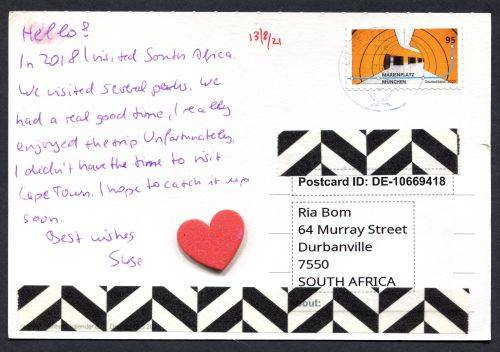 Hello!
In 2018 I visited South Africa.
We visited several parks. We
had a real good time, I really
enjoyed the trip Unfortunately,
I didn't have the time to visit
Cape Town. I hope to catch it up
soon.
Best wishes
Suse
13/8/21
95
MARIENPLATZ
MÜNCHEN
Deutschland 2020
Postcard ID: DE-10669418
Ria Bom
64 Murray Street
Durbanville
7550
SOUTH AFRICA
out: